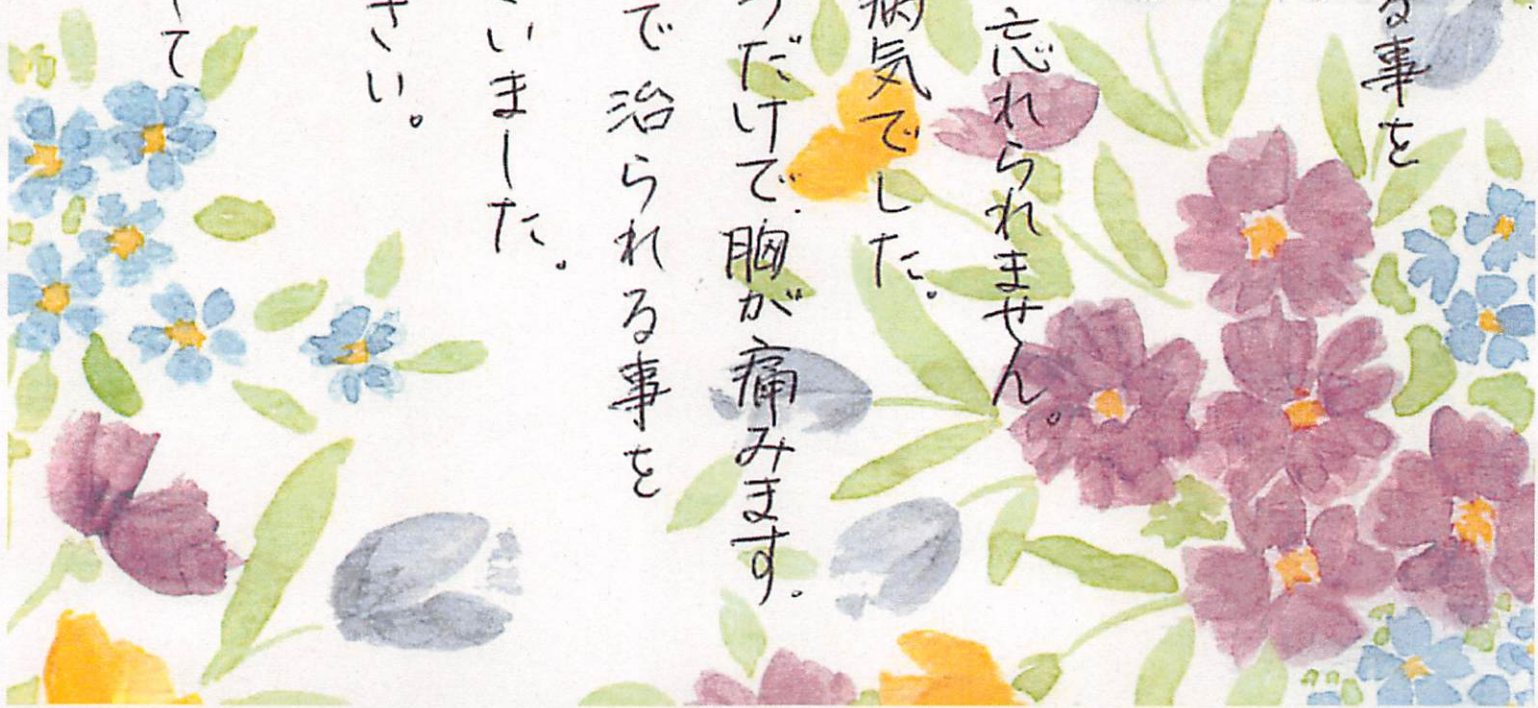 る事を
忘れられません。
病気でした。
うだけで、胸が痛みます。
で治られる事を
いました。
さい。
て